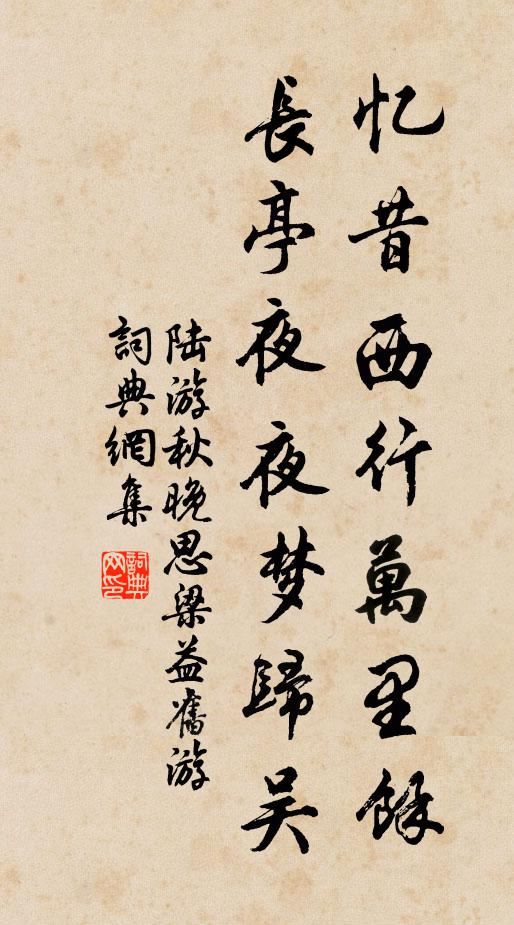 忆昔西行萬里餘
長亭夜夜梦歸吴
陆游秋晚思梁益舊游
詞典網集
詞典网印